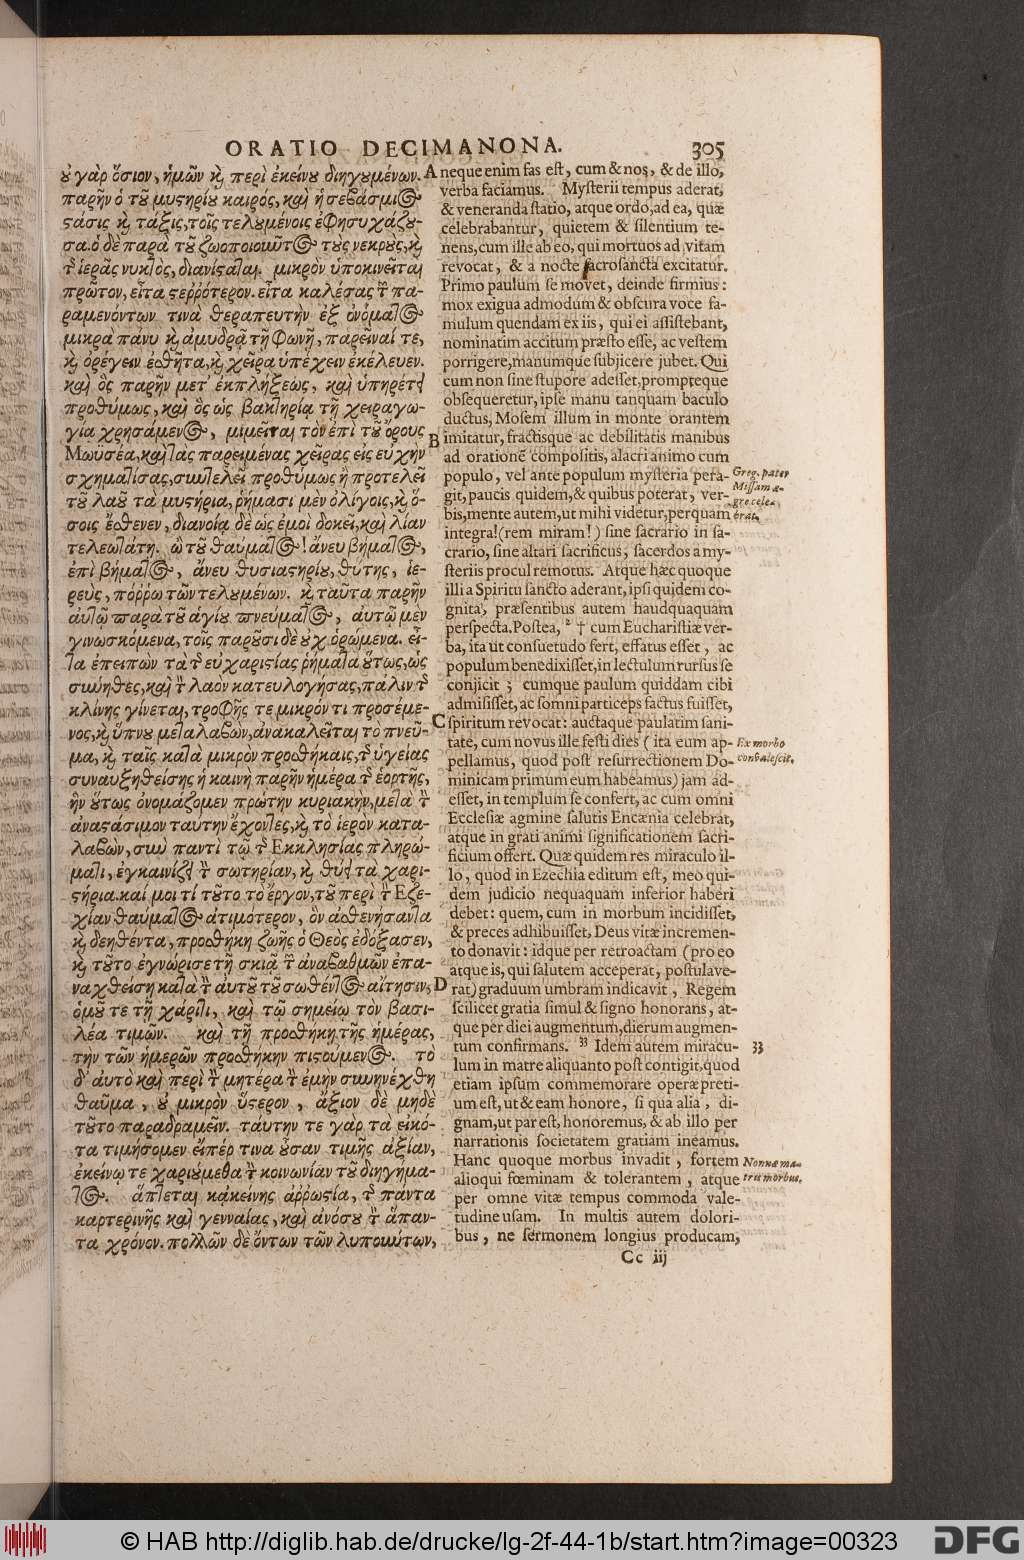 ORATIO DECIMANONA. 305
ȣ γὰρ ὅσιον, ἡμῶν κ̀ περὶ ἐκείνȣ διηγȣμένων.
παρῆν ὁ τȣ͂ μυστηρίȣ καιρὸς, καὶ ἡ σεβάσμι
στάσις κ̀ τάξις, τοῖς τελȣμένοις ἐφησυχάζȣ-
σα. ὁ δὲ παρὰ τȣ͂ ζωοποιοιῶτος τȣς νεκρȣ̀ς, κ̀
τ͂ ἱερᾶς νυκτὸς, διανίσταται. μικρὸν ὑποκινεῖται
πρῶτον, εἶτα στεῤῥότερον. εἶτα καλέσας τ̀ πα-
ραμενόντων τινὰ θεραπευτὴν ἐξ ὀνόματος
μικρᾷ πάνυ κ̀ ἀμυδρᾷ τῇ φωνῇ, παρεῖναί τε,
κ̀ ὀρέγειν ἐσθῆτα, κ̀ χεῖρα ὑπέχειν ἐκέλευεν.
καὶ ὃς παρῆν μετ' ἐκπλήξεως, καὶ ὑπηρέτει
προθύμως, καὶ ὃς ὡς βακτηρίᾳ τῇ χειραγω-
γίᾳ χρησάμενος, μιμεῖται τὸν ἐπὶ τȣ͂ ὄρους
Μωϋσέα, καὶ τὰς παρειμένας χεῖρας εἰς εὐχὴν
σχηματίσας, συντελεῖ προθύμως ἢ προτελεῖ
τȣ͂ λαȣ͂ τὰ μυστήρια, ῥήμασι μὲν ὀλίγοις, κ̀ ὅ-
σοις ἔσθενεν, διανοίᾳ δὲ ὡς ἐμοὶ δοκεῖ, καὶ λίαν
τελεωτάτῃ. ὢ τȣ͂ θαύματος! ἄνευ βήματος,
ἐπὶ βήματος, ἄνευ θυσιαστηρίȣ, θύτης, ἱε-
ρεὺς, πόῤῥω τῶν τελȣμένων. κ̀ ταῦτα παρῆν
αὐτῷ παρὰ τȣ͂ ἁγίȣ πνεύματος, αὐτῷ μὲν
γινωσκόμενα, τοῖς παρȣ͂σι δὲ ȣχ ὁρώμενα. εἶ-
τα ἐπειπὼν τὰ τ͂ εὐχαριστίας ῥήματα ȣτως, ὡς
σύνηθες, καὶ τ̀ λαὸν κατευλογήσας, πάλιν τ͂
κλίνης γίνεται, τροφῆς τε μικρόν τι προσέμε-
νος, κ̀ ὕπνȣ μεταλαβὼν, ἀνακαλεῖται τὸ πνεῦ-
μα, κ̀ ταῖς κατὰ μικρὸν προσθήκαις, τ͂ ὑγείας
συναυξηθείσης ἡ καινὴ παρῆν ἡμέρα τ͂ ἑορτῆς,
ἣν ȣτως ὀνομάζομεν πρώτην κυριακὴν, μετὰ τ̀
ἀναστάσιμον ταύτην ἔχοντες, κ̀ τὸ ἱερὸν κατα-
λαβὼν, σὺν παντὶ τῷ τ͂ Ἐκκλησίας πληρώ-
ματι, ἐγκαινίζει τ̀ σωτηρίαν, κ̀ θύει τὰ χαρι-
στήρια. καί μοι τί τȣ͂το τὸ ἔργον, τȣ͂ περὶ τ̀ Ἐζε-
χίαν θαύματος ἀτιμότερον, ὃν ἀσθενήσαντα
κ̀ δεηθέντα, προσθήκῃ ζωῆς ὁ Θεὸς ἐδόξασεν,
κ̀ τȣ͂το ἐγνώρισε τῇ σκιᾷ τ̃ ἀναβαθμῶν ἐπα-
ναχθείσῃ κατὰ τ̀ αὐτȣ͂ τȣ͂ σωθέντος αἴτησιν,
ὁμȣ͂ τε τῇ χάριτι, καὶ τῷ σημείῳ τὸν βασι-
λέα τιμῶν. καὶ τῇ προσθήκῃ τῆς ἡμέρας,
τὴν τῶν ἡμερῶν προσθήκην πιστούμενος. τὸ
δ' αὐτὸ καὶ περὶ τ̀ μητέρα τ̀ ἐμὴν συνηνέχθη
θαῦμα, ȣ μικρὸν ὕστερον, ἄξιον δὲ μηδὲ
τȣ͂το παραδραμεῖν. ταύτην τε γὰρ τὰ εἰκό-
τα τιμήσομεν εἴπέρ τινα ȣσαν τιμῆς ἀξίαν,
ἐκείνῳ τε χαριȣ́μεθα τ̀ κοινωνίαν τȣ͂ διηγήμα-
τος. ἅπτεται κἀκείνης ἀῤῥωστία, τ͂ πάντα
καρτερικῆς καὶ γενναίας, καὶ ἀνόσȣ τ̀ ἅπαν-
τα χρόνον. πολλῶν δὲ ὄντων τῶν λυπούντων,
A neque enim fas est, cum & nos, & de illo,
verba faciamus. Mysterii tempus aderat,
& veneranda statio, atque ordo, ad ea, quæ
celebrabantur, quietem & silentium te-
nens, cum ille ab eo, qui mortuos ad vitam
revocat, & a nocte sacrosancta excitatur.
Primo paulum se movet, deinde firmius:
mox exigua admodum & obscura voce fa-
mulum quendam ex iis, qui ei assistebant,
nominatim accitum præsto esse, ac vestem
porrigere, manumque subjicere jubet. Qui
cum non sine stupore adesset, prompteque
obsequeretur, ipse manu tanquam baculo
ductus, Mosem illum in monte orantem
B imitatur, fractisque ac debilitatis manibus
ad orationē compositis, alacri animo cum
populo, vel ante populum mysteria pera-
git, paucis quidem, & quibus poterat, ver-
bis, mente autem, ut mihi videtur, perquam
integra! (rem miram!) sine sacrario in sa-
crario, sine altari sacrificus, sacerdos a my-
steriis procul remotus. Atque hæc quoque
illi a Spiritu sancto aderant, ipsi quidem co-
gnita, præsentibus autem haudquaquam
perspecta. Postea, ² † cum Eucharistiæ ver-
ba, ita ut consuetudo fert, effatus esset, ac
populum benedixisset, in lectulum rursus se
conjicit; cumque paulum quiddam cibi
admisisset, ac somni particeps factus fuisset,
C spiritum revocat: auctaque paulatim sani-
tate, cum novus ille festi dies (ita eum ap-
pellamus, quod post resurrectionem Do-
minicam primum eum habeamus) jam ad-
esset, in templum se confert, ac cum omni
Ecclesiæ agmine salutis Encænia celebrat,
atque in grati animi significationem sacri-
ficium offert. Quæ quidem res miraculo il-
lo, quod in Ezechia editum est, meo qui-
dem judicio nequaquam inferior haberi
debet: quem, cum in morbum incidisset,
& preces adhibuisset, Deus vitæ incremen-
to donavit: idque per retroactam (pro eo
atque is, qui salutem acceperat, postulave-
D rat) graduum umbram indicavit, Regem
scilicet gratia simul & signo honorans, at-
que per diei augmentum, dierum augmen-
tum confirmans. ³³ Idem autem miracu-
lum in matre aliquanto post contigit, quod
etiam ipsum commemorare operæ preti-
um est, ut & eam honore, si qua alia, di-
gnam, ut par est, honoremus, & ab illo per
narrationis societatem gratiam ineamus.
Hanc quoque morbus invadit, fortem
alioqui fœminam & tolerantem, atque
per omne vitæ tempus commoda vale-
tudine usam. In multis autem dolori-
bus, ne sermonem longius producam,
Greg. pater
Missam æ-
gre cele-
brat.
Ex morbo
convalescit.
33
Nonnæ ma-
tris morbus.
Cc iij
© HAB http://diglib.hab.de/drucke/lg-2f-44-1b/start.htm?image=00323
DFG